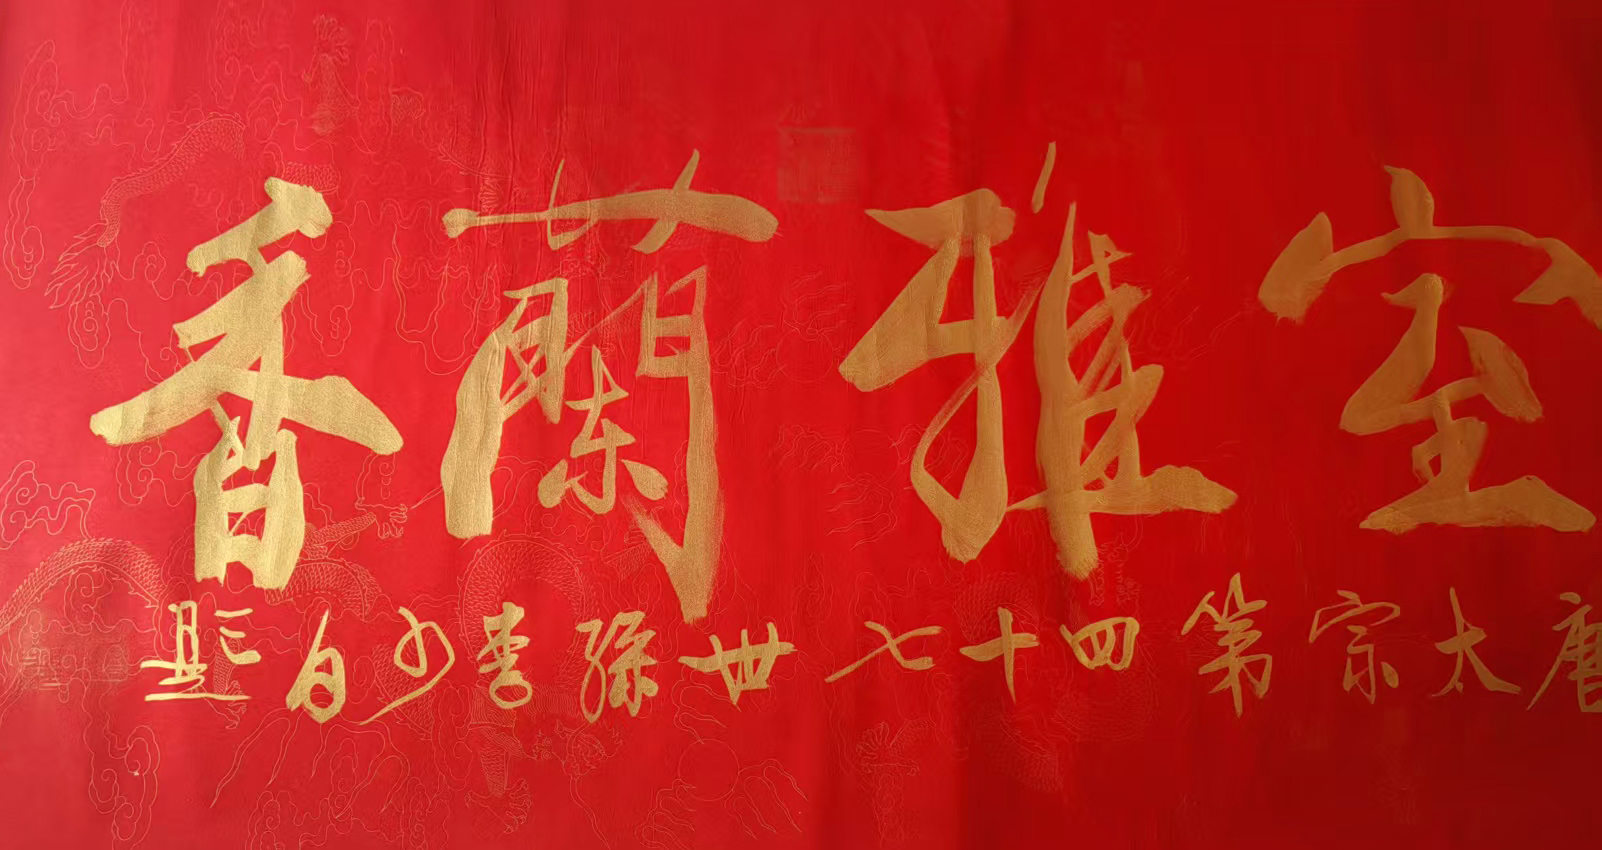 室雅蘭香
唐太宗第四十七世孫李少白題